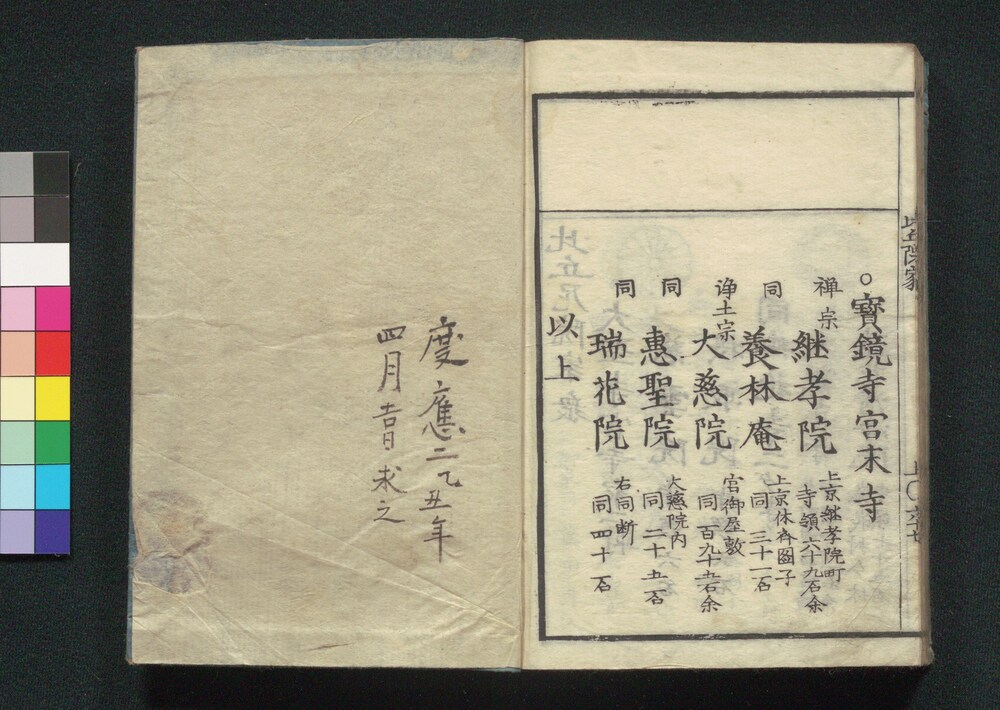 ○寳鏡寺宮末寺
禅宗
継孝院
上京継孝院町
寺領六十九石余
同
養林庵
上京休斎圖子
同三十一石
浄土宗
大慈院
宮御屋敷
同百九十五石余
同
惠聖院
大慈院内
同二十五石
同
瑞花院
右同断
同四十石
以上
慶應二乙丑年
四月吉日求之